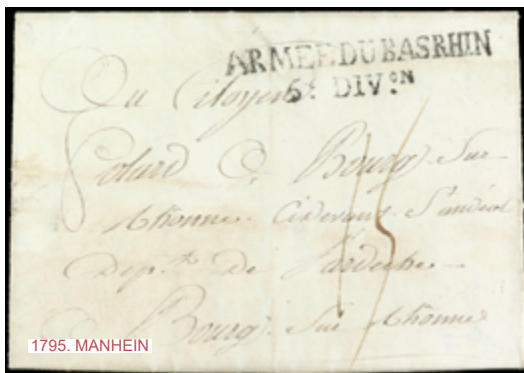 ARMÉE DU BAS RHIN
5e DIVON
Au Citoyen
Bourg Sur
Rhonne Cidevant St andéol
Dept de L'ardeche
a Bourg Sur Rhonne
15
1795. MANHEIN